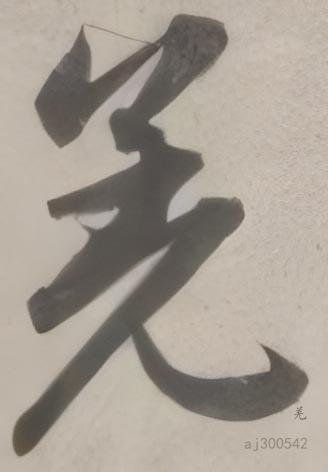 羌
羌
aj300542